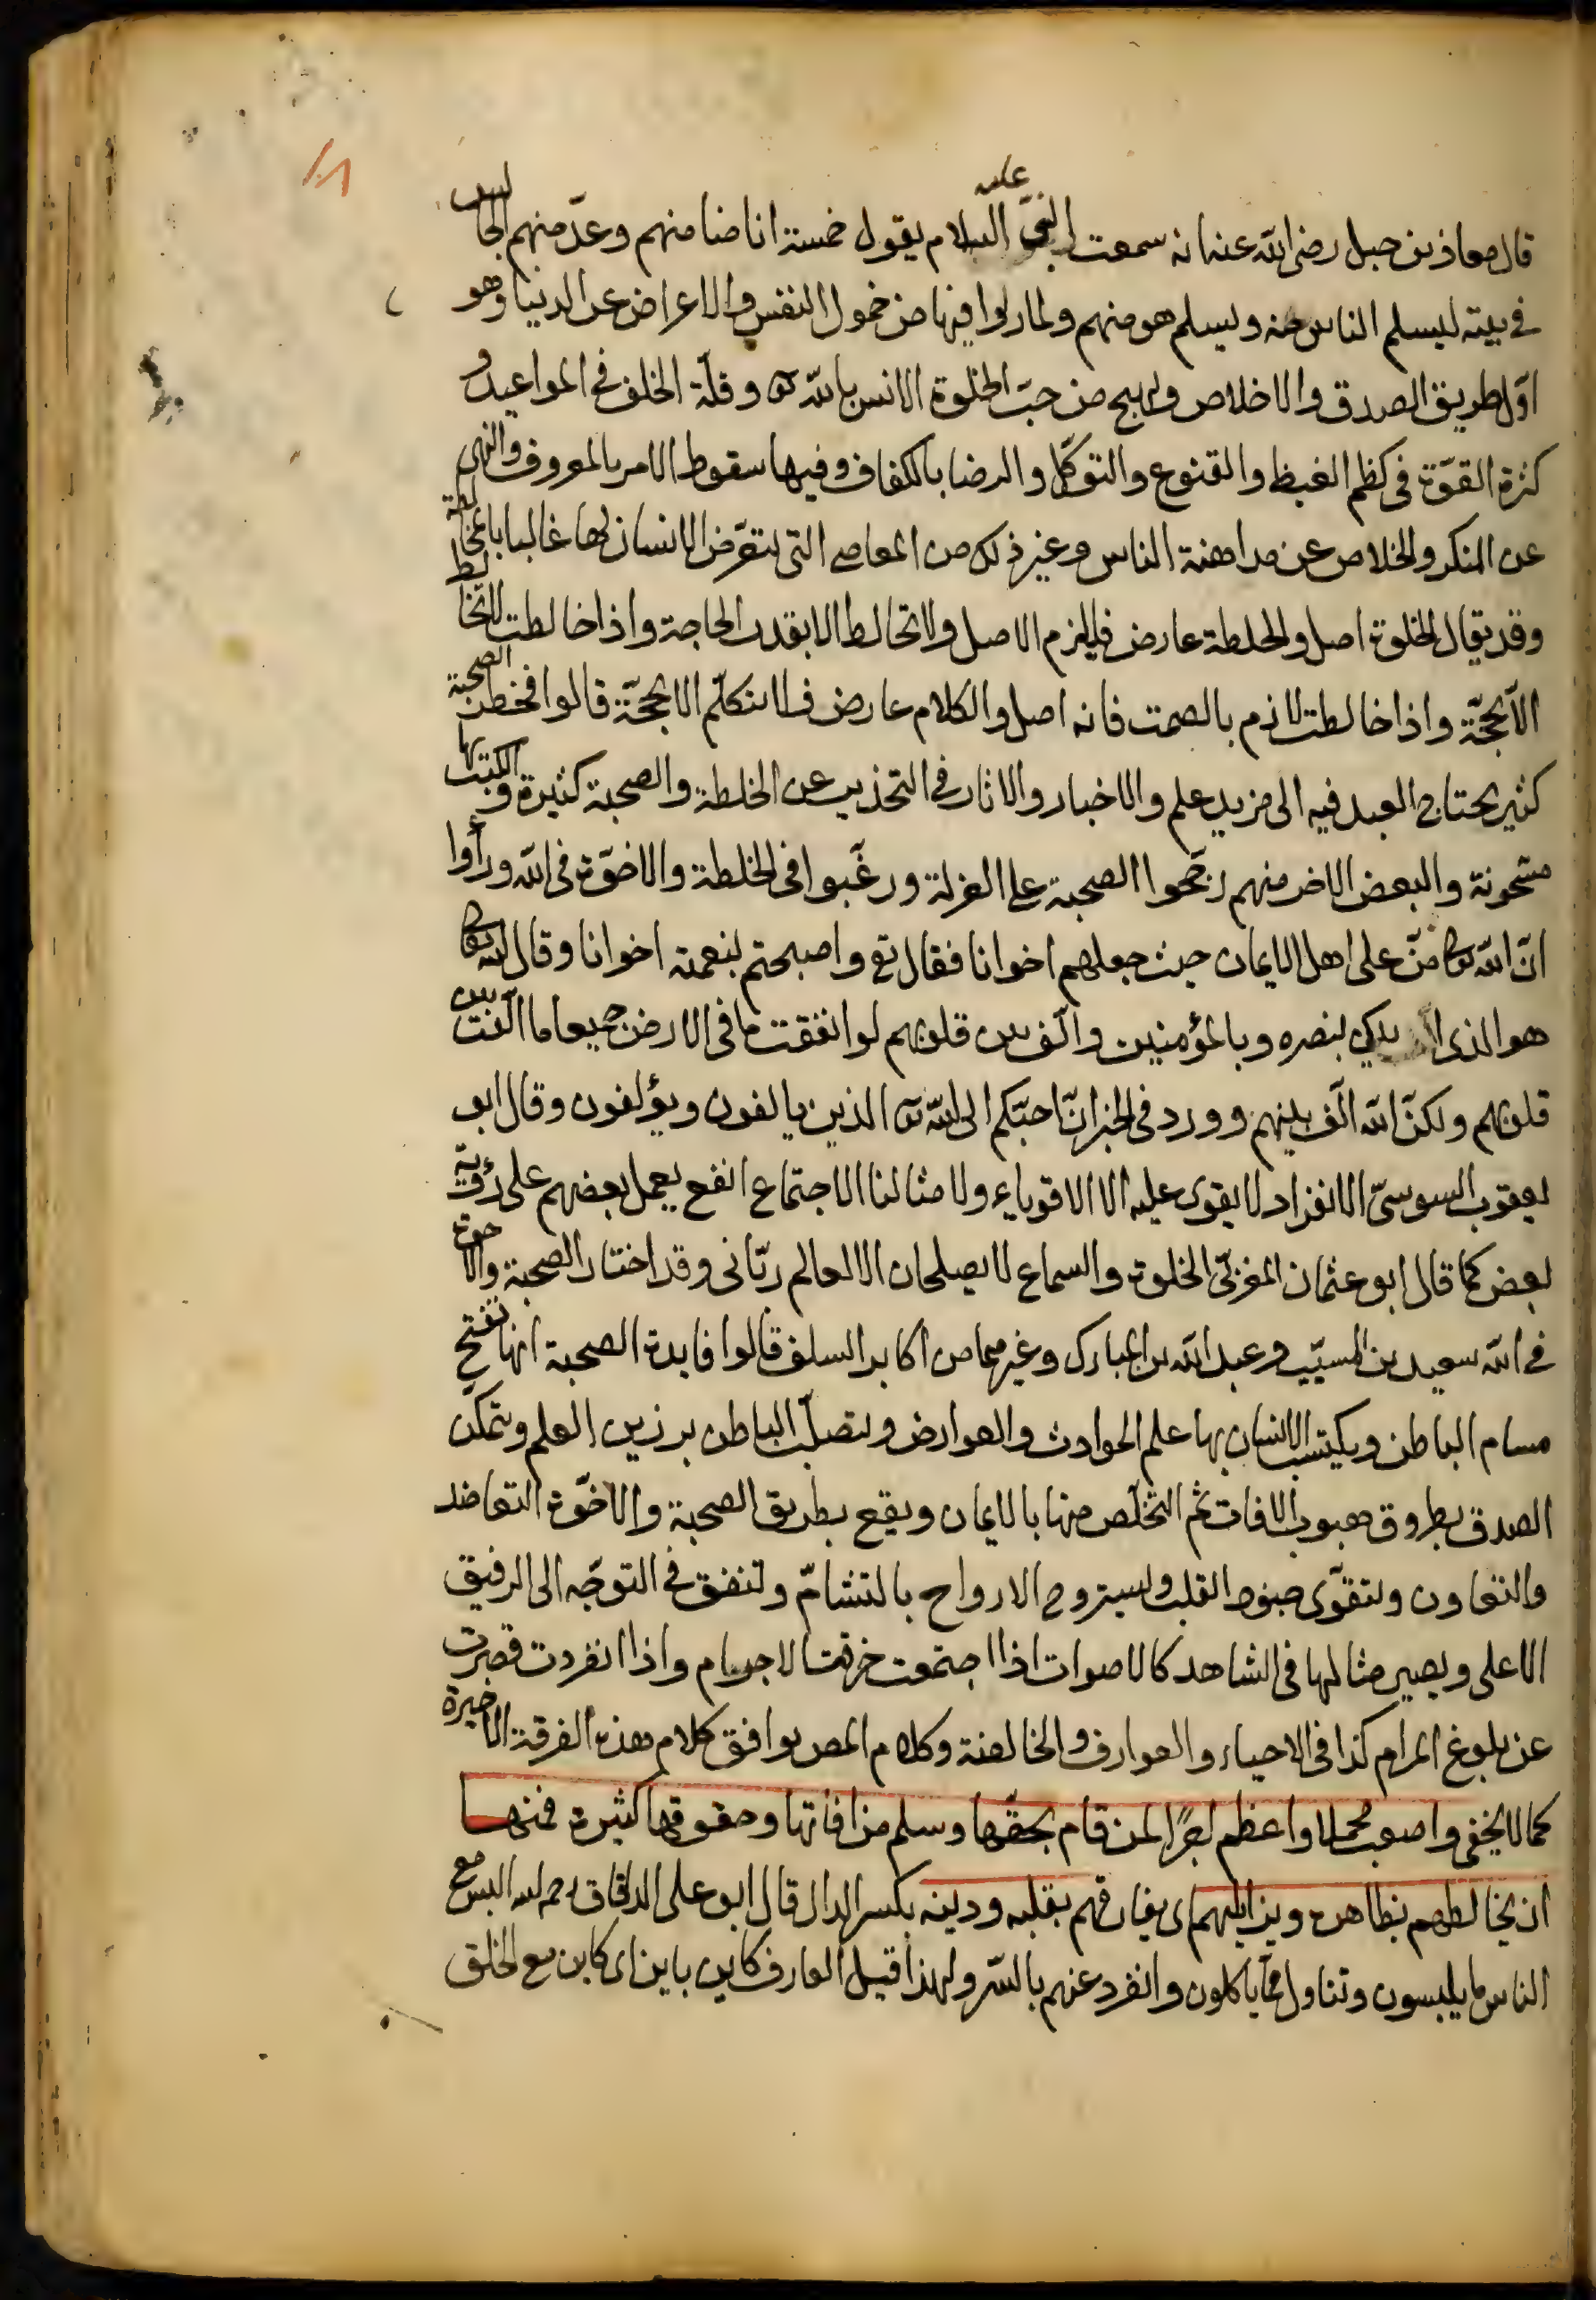 ١٠٨
قال معاذ بن جبل رضى الله عنه انه سمعت النبىّ عليه السلام يقول خمسة انا ضامنهم وعدّ منهم الجالس
فى بيته ليسلم الناس منه ويسلم هو منهم ولما راوا فيها من خمول النفس والاعراض عن الدنيا وهو
اوّل طريق الصدق والاخلاص ولهيج من حبّ الخلوة الانس بالله تع وقلّة الخلف فى المواعيد و
كثرة القوّة فى كظم الغيظ والقنوع والتوكّل والرضا بالكفاف وفيها سقوط الامر بالمعروف والنهى
عن المنكر والخلاص عن مداهنة الناس وغير ذلك من المعاصى التى يتعرّض الانسان لها غالبا بالمخالطة
وقد يقال الخلوة اصل والخلطة عارض فليلزم الاصل ولا تخالط الا بقدر الحاجة واذا خالطت لا تخالط
الّا بحجّة واذا خالطت لازم بالصمت فانه اصل والكلام عارض فلا تتكلّم الا بحجّة قالوا فخطر الصحبة
كثير يحتاج العبد فيه الى مزيد علم والاخبار والاثار فى التحذير عن الخلطة والصحبة كثيرة والكتب بها
مشحونة والبعض الاخر منهم رجّحوا الصحبة على العزلة ورغّبوا فى الخلطة والاخوّة فى الله ورأوا
انّ الله تعالى منّ على اهل الايمان حيث جعلهم اخوانا فقال تع واصبحتم بنعمته اخوانا وقال الله تعالى
هو الذى ايدك بنصره وبالمؤمنين والّف بين قلوبهم لو انفقت ما فى الارض جميعا ما الّفت بين
قلوبهم ولكنّ الله الّف بينهم وورد فى الخبر انّ احبّكم الى الله تع الذين يالفون ويؤلفون وقال ابو
يعقوب السوسىّ الانفراد لا يقوى عليه الا الاقوياء ولامثالنا الاجتماع انفع يعمل بعضهم على رؤية
بعض كما قال ابو عثمان المغربىّ الخلوة والسماع لا يصلحان الا لعالم ربّانى وقد اختار الصحبة والاخوة
فى الله سعيد بن المسيّب وعبد الله بن المبارك وغيرهما من اكابر السلف قالوا فايدة الصحبة انها تفتح
مسام الباطن ويكتسب الانسان بها علم الحوادث والعوارض ويتصلّب الباطن برزين العلم ويتمكّن
الصدق بطروق هبوب الافات ثم التخلّص منها بالايمان ويقع بطريق الصحبة والاخوّة التعاضد
والتعاون ولتقوّى جنود القلب وليستروح الارواح بالتشامّ وتتفق فى التوجّه الى الرفيق
الاعلى ويصير مثالها فى الشاهد كالاصوات اذا اجتمعت خرقت الاجرام واذا انفردت قصرت
عن بلوغ المرام كذا فى الاحياء والعوارف والخالصة وكلام المص يوافق كلام هذه الفرقة الاخيرة
كما لا يخفى واصعب محملا واعظم اجرًا لمن قام بحقّها وسلم من افاتها وحقوقها كثيرة فمنها
ان يخالطهم بظاهره ويزايلهم اى يفارقهم بقلبه ودينه بكسر الدال قال ابو على الدقاق رحمه الله البس مع
الناس ما يلبسون وتناول ممّا ياكلون وانفرد عنهم بالسّر ولهذا قيل العارف كاين باين اى كاين مع الخلق